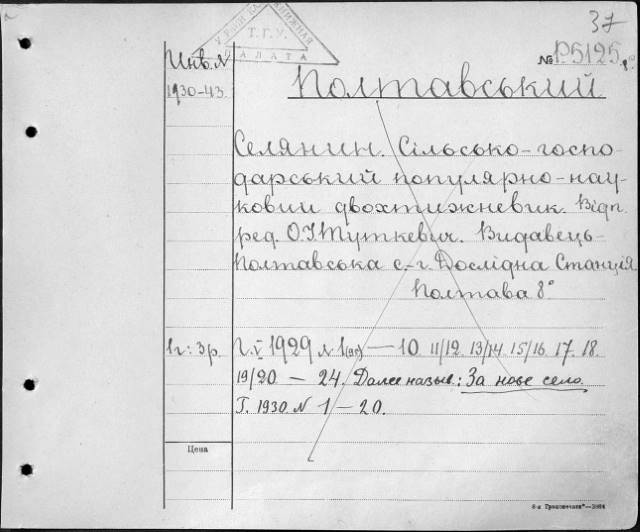 37
КНИЖНАЯ
Т.Г.У.
ПАЛАТА
№ Р5125 8°
Инв. №
1930-43.
Полтавський
Селянин. Сільсько-госпо-
дарський популярно-нау-
ковий двохтижневик. Відп.
ред. О.І. Туткевич. Видавець-
Полтавська с.-г. Дослідна Станція
Полтава 8°
1г: 3р.
Г. V 1929 № 1(91) — 10 11/12. 13/14 15/16. 17. 18.
19/20 — 24. Далее назыв.: За нове село.
Г. 1930 № 1 — 20.
Цена